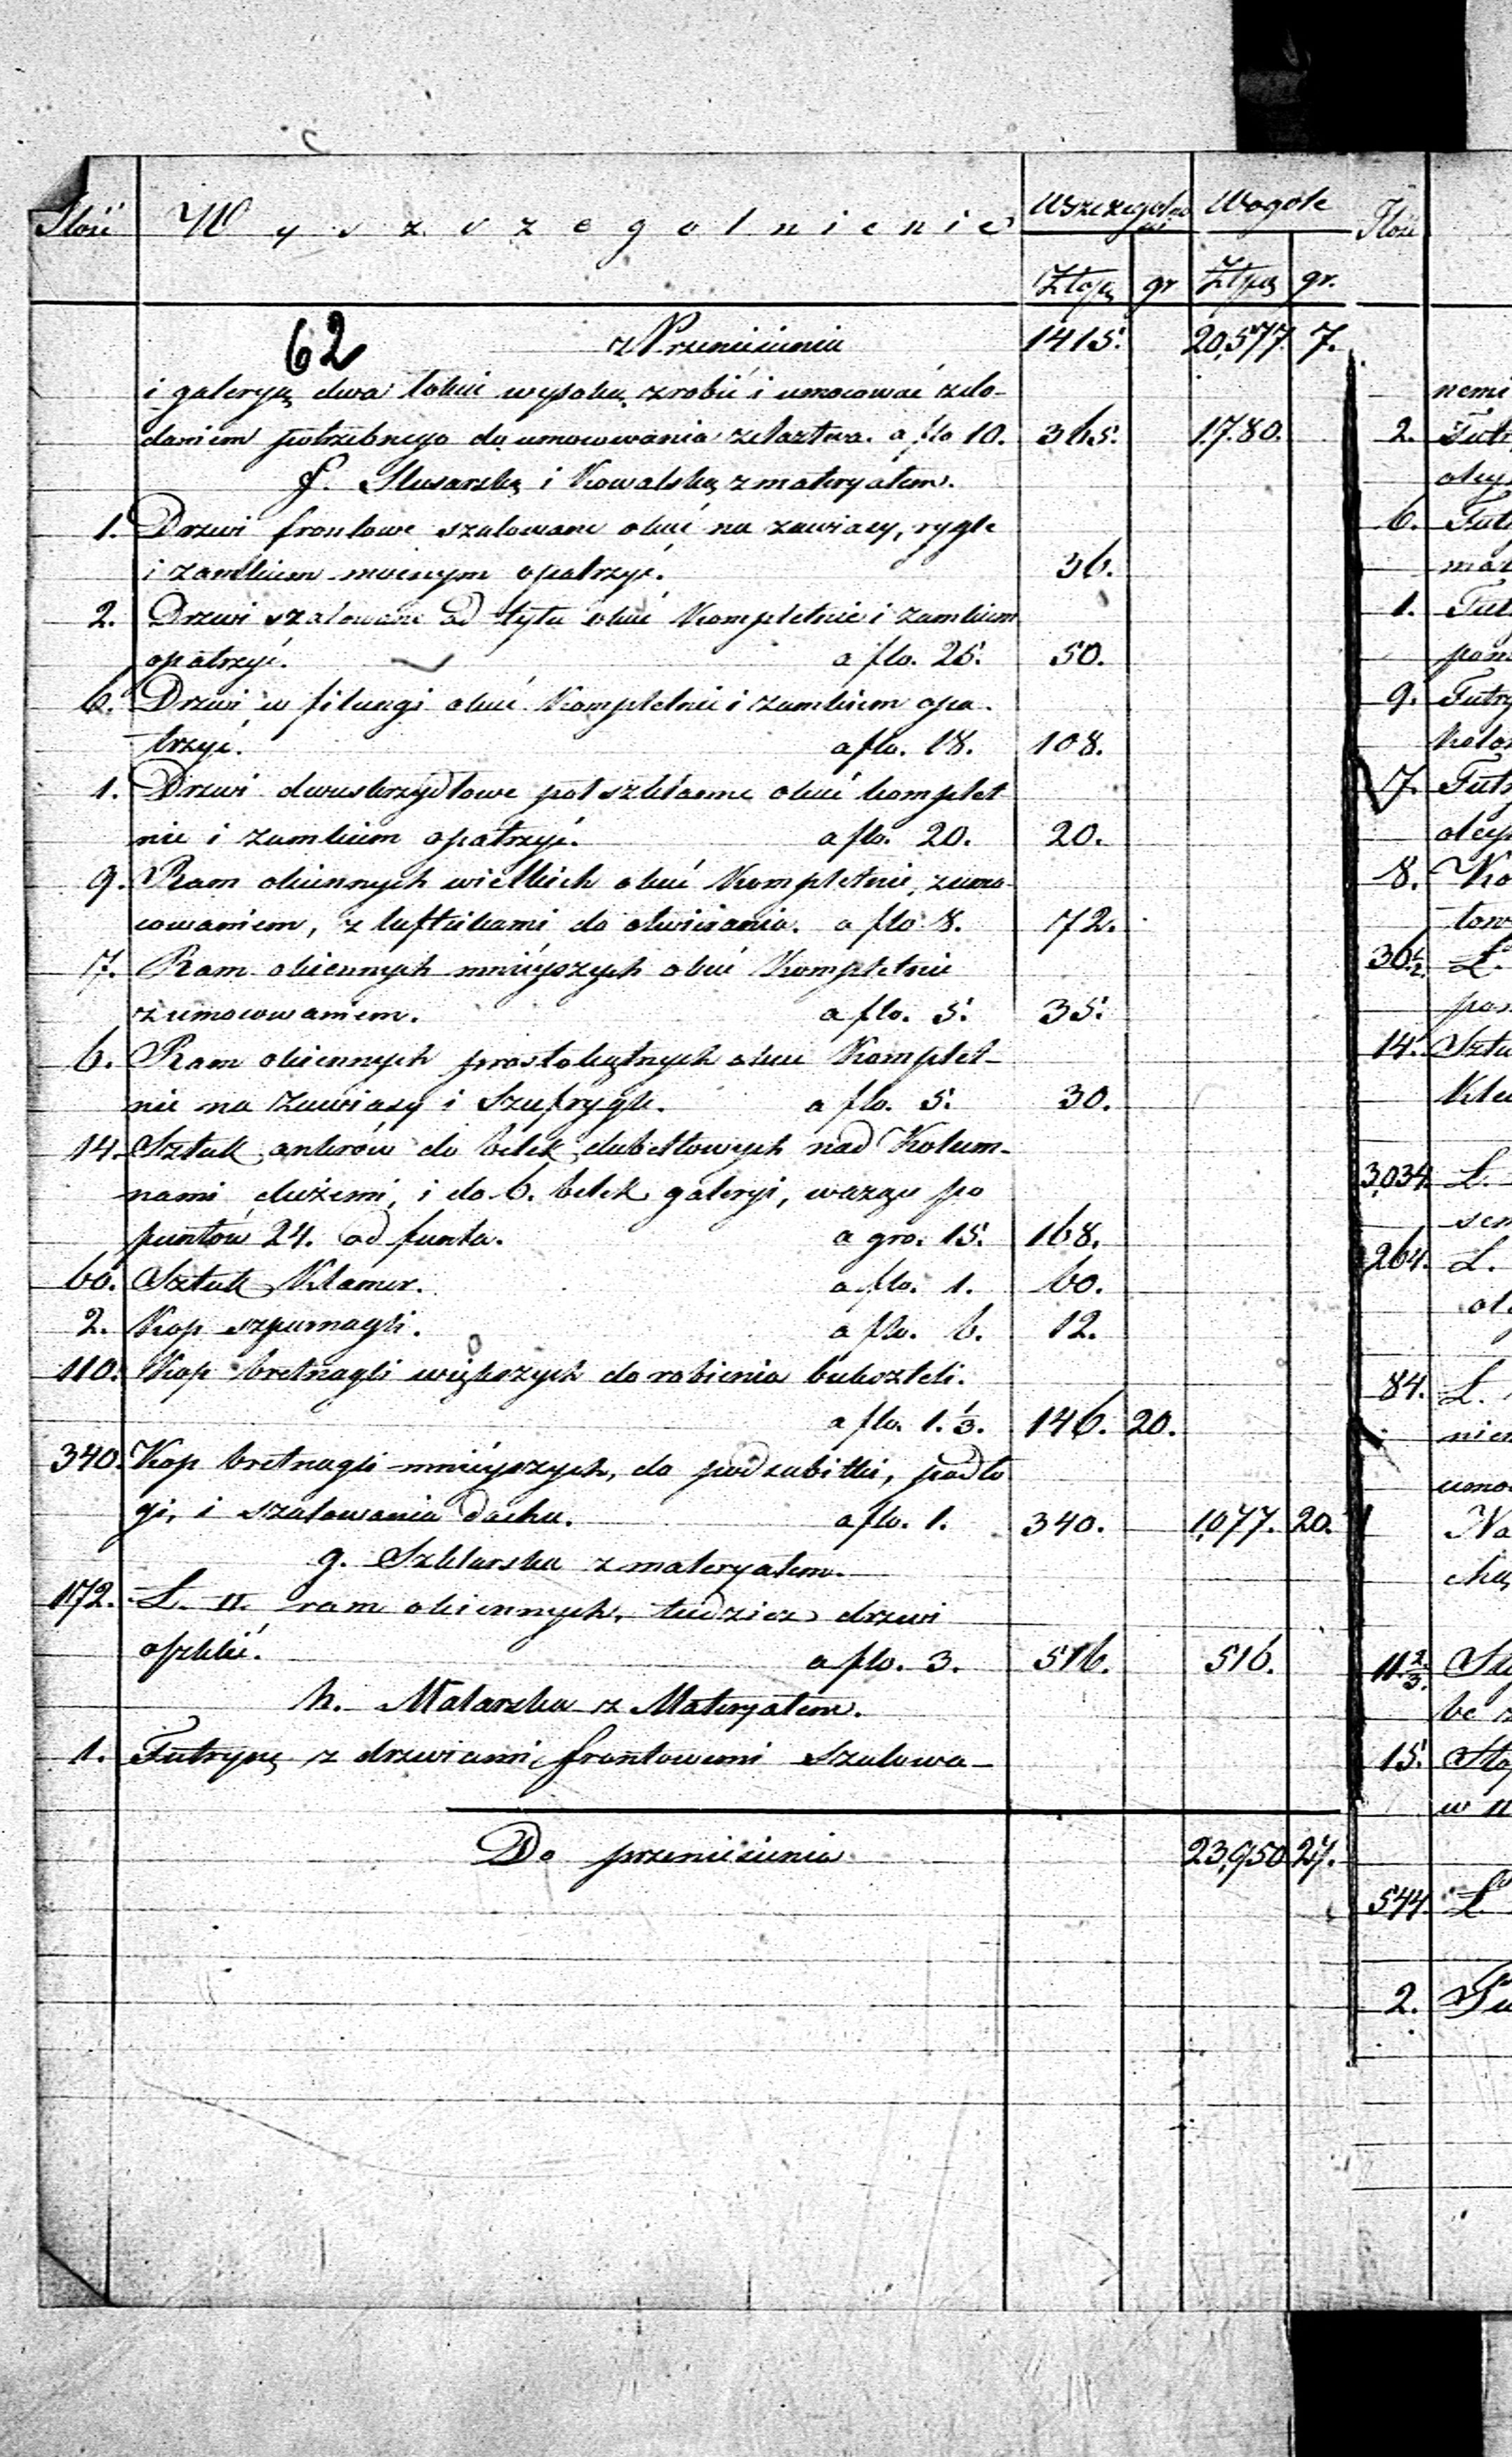 Ilość Wyszczegolnienie Wszczegolności Wogóle
Złopę gr Złpę gr.
62 z Przeniesienia 1415. 20,577. 7.
i galeryą dwa łokci wysoką zrobić i umocować z do-
daniem potrzebnego do umocowania żelaztwa. a flo 10. 365. 1780.
f. Slusarską i Kowalską z materyałem.
1. Drzwi frontowe szalowane okuć na zawiasy, rygle
i zamkiem mocnym opatrzyć. 36.
2. Drzwi szalowane od tyłu okuć Kompletnie i zamkiem
opatrzyć. a flo. 25. 50.
6. Drzwi w filungi okuć Kompletnie i zamkiem opa-
trzyć. a flo. 18. 108.
1. Drzwi dwuskrzydłowe pół szklanne okuć komplet
nie i zamkiem opatrzyć. a flo. 20. 20.
9. Ram okiennych wielkich okuć Kompletnie, z umo-
cowaniem, z luftikami do otwierania. a flo 8. 72.
7. Ram okiennych mniéyszych okuć Kompletnie
z umocowaniem. a flo. 5. 35.
6. Ram okiennych prostokątnych okuć Komplet-
nie na zawiasy i Szufrygle. a flo. 5. 30.
14. Sztuk ankrów do belek dubeltowych nad Kolum-
nami dużemi, i do 6. belek galeryi, wazące po
funtów 24. od funta. a gro. 15. 168.
60. Sztuk Klamer. a flo. 1. 60.
2. Kop szpurnagli. a flo. 6. 12.
110. Kop bretnagli większych do robienia bukszteli.
a flo. 1. 1/3. 146. 20.
340. Kop bretnagli mniéyszych, do podsubitki, podło
gi, i szalowania dachu. a flo. 1. 340. 1,077. 20.
g. Szklarska z materyałem.
172. Ł. II. ram okiennych, tudzież drzwi
oszklić. a flo. 3. 516. 516.
h. Malarska z Materyałem.
1. Futrynę z drzwiami frontowemi Szalowa-
Do przeniesienia 23,950 27.
Ilość
nemi
2. Futr
oley
6. Fut
mal
1. Fut
pom
9. Futry
Kolo
7. Futr
oley
8. Ko
low
36 1/2. Ł.
po
14. Sztu
Klu
3,034. Ł.
sem
264. Ł.
ol
84. Ł.
nie
umo
Na
chę
11 2/3.
be
15.
w II
544. Ł
2.